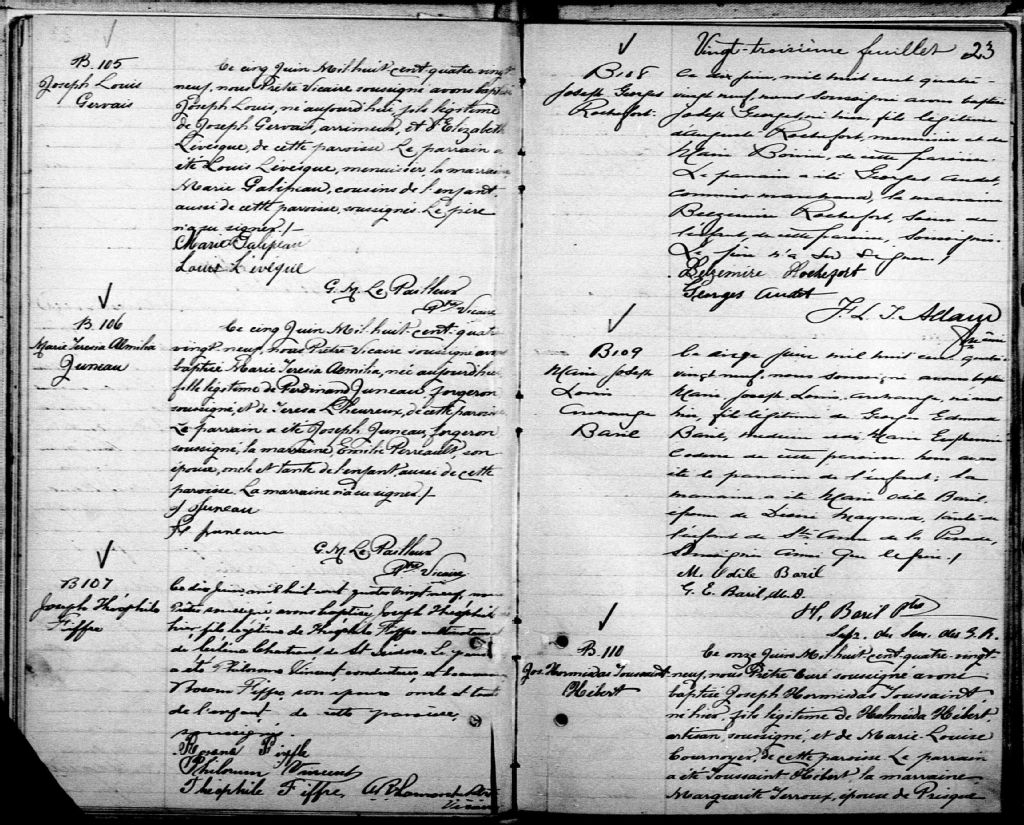 B. 105
Joseph Louis
Gervais
Ce cinq Juin Mil huit cent quatre vingt
neuf, nous Prêtre Vicaire soussigné avons baptisé
Joseph Louis, né aujourd'hui, fils légitime
de Joseph Gervais, arrimeur, et d'Elizabeth
Lévesque, de cette paroisse. Le parrain a
été Louis Lévesque, menuisier, la marraine
Marie Galipeau, cousins de l'enfant,
aussi de cette paroisse, soussignés. Le père
n'a su signer. /
Marie Galipeau
Louis Lévêque
G. M. Le Pailleur
Ptre Vicaire
B. 106
Marie Teresia Almilha
Juneau
Ce cinq Juin Mil huit cent quatre
vingt neuf, nous Prêtre Vicaire soussigné avons
baptisé Marie Teresia Almilha, née aujourd'hui
fille légitime de Ferdinand Juneau, forgeron
soussigné, et de Teresa L'heureux, de cette paroisse.
Le parrain a été Joseph Juneau, forgeron
soussigné, la marraine, Emilie Perreault, son
épouse, oncle et tante de l'enfant, aussi de cette
paroisse. La marraine n'a su signer. /
J Juneau
Fd juneau
G. M. Le Pailleur
Ptre Vicaire
B 107
Joseph Théophile
Fiffre
Ce dix Juin, mil huit cent quatre vingt neuf,
Prêtre soussigné avons baptisé Joseph Théophile
hier, fils légitime de Théophile Fiffre
de St Isidore. Le
a été Philorum Vincent conducteur, et
Fiffre, son épouse oncle et tante
de l'enfant, de cette paroisse,
soussigné.
Rosana Fiffre
Philorum Vincent
Théophile Fiffre.
Vicaire
Vingt-troisième feuillet 23
B 108
Joseph Georges
Rochefort.
Ce dix juin, mil huit cent quatre-
vingt neuf, nous soussigné avons baptisé
Joseph Georges, né hier, fils légitime
d'Auguste Rochefort, menuisier et de
Marie Boivin, de cette paroisse.
Le parrain a été Georges Audet,
commis marchand, la marraine
Rochefort, Soeur de
l'enfant, de cette paroisse, Soussignés.
Le père n'a su signer. /
Belzemire Rochefort
Georges Audet
F. L. T. Adam
B 109
Marie Joseph
Louis
Archange
Baril
Ce onze juin mil huit cent quatre-
vingt neuf, nous soussigné avons baptisé
Marie Joseph Louis, archange, né
hier, fils légitime de George Edmond
Baril, médecin et de Marie
de cette paroisse. Nous avons
été le parrain de l'enfant; la
marraine a été Marie Odile Baril,
épouse de Désiré Mayrand, tante de
l'enfant de Ste Anne de la Pérade,
soussignée ainsi que le père. /
M. Odile Baril
G. E. Baril M.D.
H. Baril Ptre
B. 110
Jos. Hormidas Toussaint
Hébert
Ce onze Juin Mil huit cent quatre-vingt-
neuf, nous Prêtre Curé soussigné avons
baptisé Joseph Hormidas Toussaint,
né hier, fils légitime de Halmida Hébert,
artisan, soussigné, et de Marie-Louise
Cournoyer, de cette paroisse. Le parrain
a été Toussaint Hébert, la marraine
Marguerite Terroux, épouse de Prisque